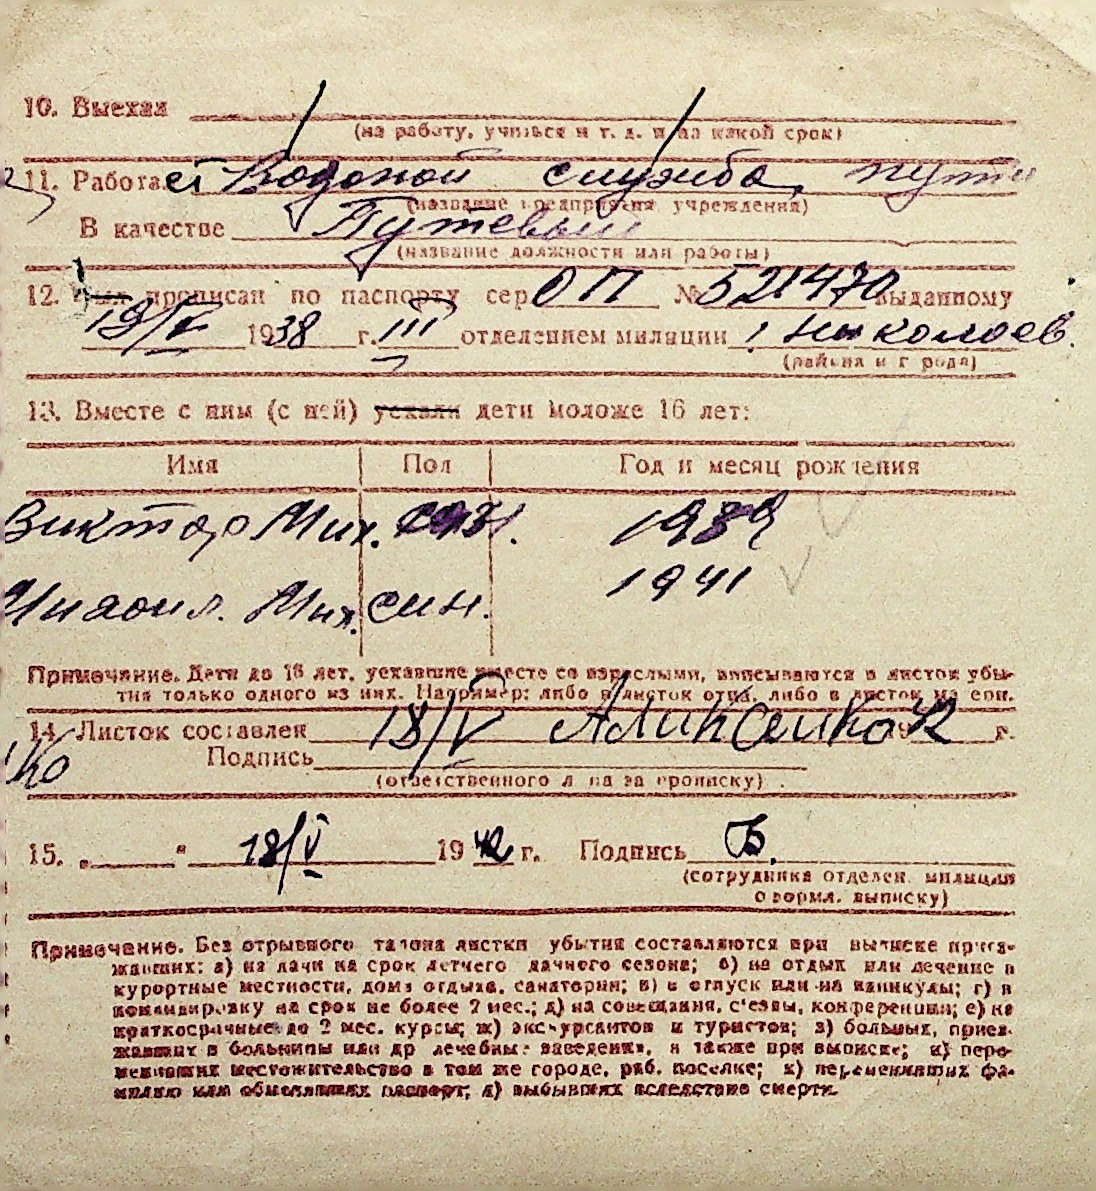 10. Выехал
(на работу, учиться и т. д. и на какой срок)
11. Работа ст Водопой служба пути
(название предприятия учреждения)
В качестве Путевый
(название должности или работы)
12. Был прописан по паспорту сер ОП № 521470 выданному
19/V 1938 г. III отделением милиции г Николаев.
(района и города)
13. Вместе с ним (с ней) уехали дети моложе 16 лет:
Имя Пол Год и месяц рождения
Виктор Мих. 1939
Михаил. Мих. син. 1941
Примечание. Дети до 16 лет, уехавшие вместе со взрослыми, вписываются в листок убы-
тия только одного из них. Например: либо в листок отца, либо в листок матери.
14. Листок составлен 18/V 1942 г.
Подпись
(ответственного лица за прописку)
15. „ " 18/V 1942 г. Подпись Б.
(сотрудника отделен. милиции
оформл. выписку)
Примечание. Без отрывного талона листки убытия составляются при выписке приез-
жавших: а) на дачи на срок летнего дачного сезона; б) на отдых или лечение в
курортные местности, дома отдыха, санатории; в) в отпуск или на каникулы; г) в
командировку на срок не более 2 мес.; д) на совещания, с'езды, конференции; е) на
краткосрочные до 2 мес. курсы; ж) экскурсантов и туристов; з) больных, приез-
жавших в больницы или др лечебные заведения, а также при выписке; и) пере-
менивших местожительство в том же городе, раб. поселке; к) переменивших фа-
милию или обменявших паспорт; л) выбывших вследствие смерти.